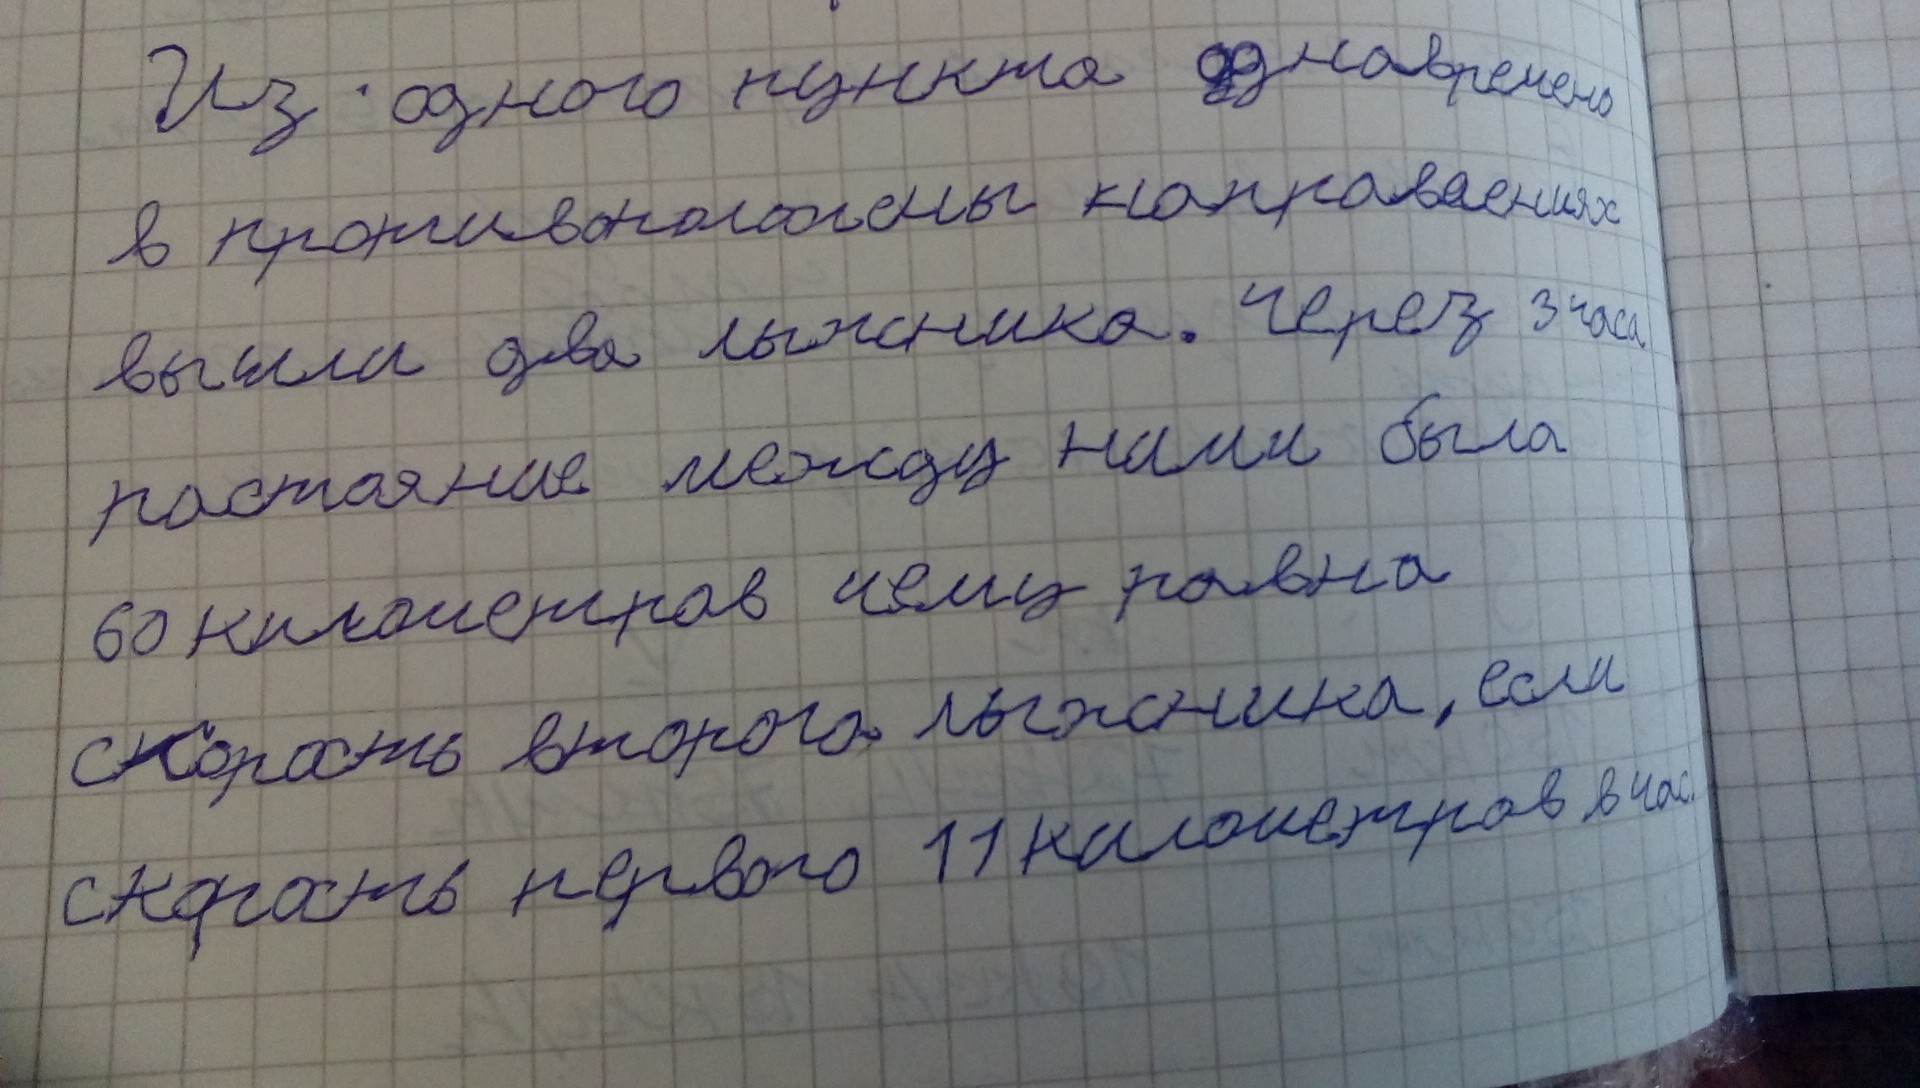 Из одного пункта однавремено
в противоположены направлениях
вышли два лыжника. Через 3 часа
растаяние между ними была
60 километров чему равна
скорасть второго лыжника, если
скорасть первого 11 километров в час.